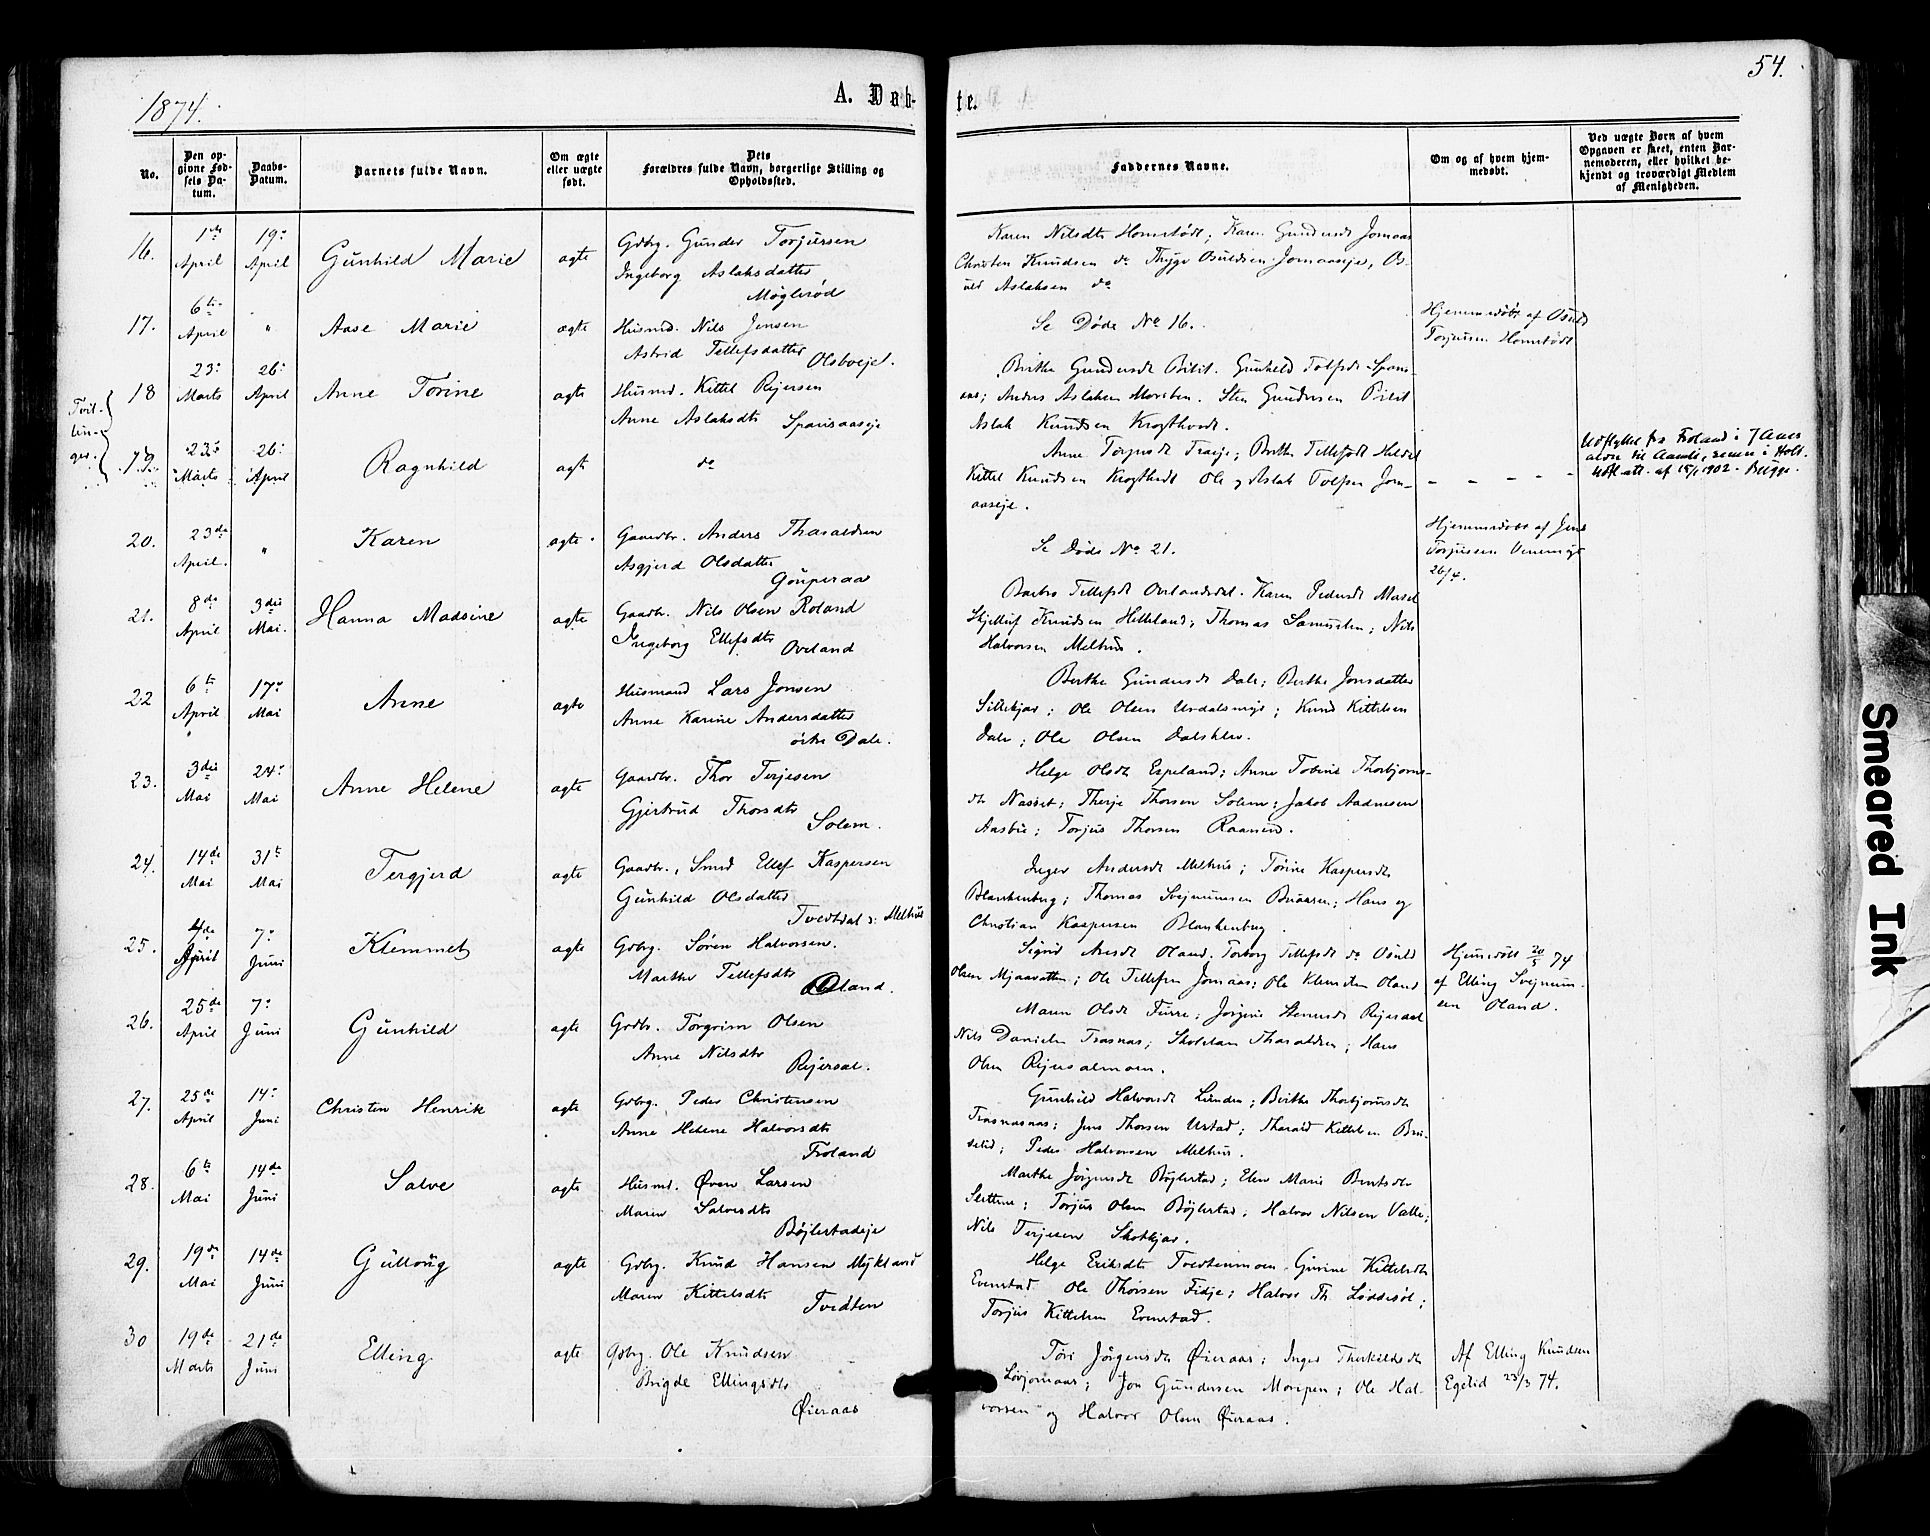 1874.
A. Døb-
te.
54.
No.
Den op-
givne Fød-
sels Da-
tum.
Daabs-
Datum.
Barnets fulde Navn.
Om ægte
eller uægte
født.
Dets
Forældres fulde Navn, borgerlige Stilling og
Opholdssted.
Faddernes Navne.
Om og af hvem hjem-
medøbt.
Ved uægte Børn af hvem
Opgaven er skeet, enten Bar-
nemoderen, eller hvilket be-
kjendt og troværdigt Medlem
af Menigheden.
16. 1ste April 19de April Gunhild Marie ægte
Gdbrg. Gunder Torjursen
Ingeborg Aslaksdatter
Møglerød
Karen Nilsdtr Homstødt; Karen Gundersdt Jomaas
Christen Knudsen do Thygo Osuldsen Jomaaseje, Os-
uld Aslaksen do
17. 6te April " Aase Marie ægte
Husmd. Nils Jensen
Astrid Tellefsdatter
Olsbueje.
Se Døde No 16.
Hjemmedøbt af Osuld
Torjussen Homstødt
Tvil-
lin-
ger.
18 23: Marts 26: April Anne Torine ægte
Husmd. Kittel Rejersen
Anne Aslaksdtr
Spanisaaseje
Aslak Knudsen Krogthvedt.
19. 23: Marts 26: April Ragnhild ægte do
Kittel Knudsen Krogthvedt Ole og Aslak Tolfsen Jom-
aaseje.
Udflyttet fra Froland i 7 Aars
alder til Aamli, senere i Holt.
Udfl. att. af 15/1 1902. Begge.
20. 23de April. " Karen ægte
Gaardbr. Anders Tharaldsen
Asgjerd Olsdatter
Gouperaa
Se Døde No 21.
Hjemmedøbt af Jens
Torjussen Venemyr
26/4.
21. 8de April 3die Mai. Hanna Madsine ægte
Gaardbr. Nils Olsen Roland
Ingeborg Ellefsdtr
Oveland
Barbro Tellefsdt Ovelandsdal. Karen Pedersdt Messel
Skjelluf Knudsen Helleland; Thomas Samuelsen; Nils
Halvorsen Melhus.
22 6te April 17de Mai Anne ægte
Husmand Lars Jonsen
Anne Karine Andersdatter
østre Dale.
Berthe Gundersdt Dale; Berthe Jonsdatter
Sillekjær; Ole Olsen Urdalsmyr; Knud Kittelsen
Dale; Ole Olsen Dalsklev.
23. 3die Mai 24: Mai Anne Helene ægte
Gaardbr. Thor Terjesen
Gjertrud Thorsdtr
Solem.
Helge Olsdt Espeland; Anne Tobine Thorbjorns-
dt Nasset; Therje Thorsen Solem; Jakob Aadnesen
Aasbie; Torjus Thorsen Raanes.
24. 14de Mai 31te Mai Tergjerd ægte
Gaardbr., Smed Ellef Kaspersen
Gunhild Olsdatter
Tvedtdal i Melhus
Inger Andersdt Melhus; Torine Kaspersdt
Blankenberg; Thomas Svejnumsen Buaasen; Hans og
Christian Kaspersen Blankenberg.
25. 4de April 7: Juni Klemmet ægte
Gdbrg. Søren Halvorsen.
Marthe Tellefsdtr
Oland.
Sigrid Aresdt Oland. Torborg Tellefsdt do Osuld
Olsen Mjaavatten; Ole Tellefsen Jomaas; Ole Klemetsen Oland
Hjemmedøbt 20/5 74
af Elling Svejnum-
sen Oland.
26. 25de April 7: Juni Gunhild ægte
Grdbr. Torgrim Olsen
Anne Nilsdtr
Rejersal.
Maren Olsdt Furre; Jørgine Stenersdt Rejersdal
Nils Danielsen Trasnas; Skolstam Tharaldsen; Hans
Olsen Rejersalmoen.
27. 25de April 14: Juni Christen Henrik ægte
Gdbrg. Peder Christensen
Anne Helene Halvorsdtr
Froland
Gunhild Halvorsdt Lunden; Berthe Thorbjornsdt
Trasnasnas; Jens Thorsen Ustad; Tharald Kittelsen Bru-
selid; Peder Halvorsen Melhus.
28. 6te Mai 14de Juni Salve ægte
Husmd. Øven Larsen
Maren Salvesdtr
Bøjlestadeje
Marthe Jørgensdt Bøjlestad; Elen Marie Berntsdtr
Torjus Olsen Bøjlestad; Halvor Nilsen Valle;
Nils Terjesen Skotkjær.
29. 19de Mai 14de Juni Gulloug ægte
Gdbrg. Knud Hansen Mykland
Maren Kittelsdtr
Tvedten
Helge Eriksdtr Tvedtenmoen. Gurine Kittelsdtr
Evenstad Ole Thorsen Fidje; Halvor Th. Løddesøl;
Torjus Kittelsen Evenstad.
30 19de Marts 21de Juni Elling ægte
Gdbrg. Ole Knudsen
Brigde Ellingsdtr
Øieraas
Tori Jørgensdt Øieraas; Inger Therkildsdt
Løvjomaas; Jon Gundersen Moripen; Ole Hal-
vorsen og Halvor Olsen Øieraas.
Af Elling Knudsen
Egelid 23/3 74.
Smeared Ink